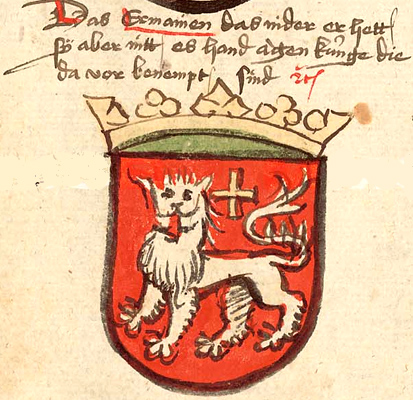 Das Ermainen das nider er hett
so aber nitt es hand aigen kunge die
da vor benempt sind